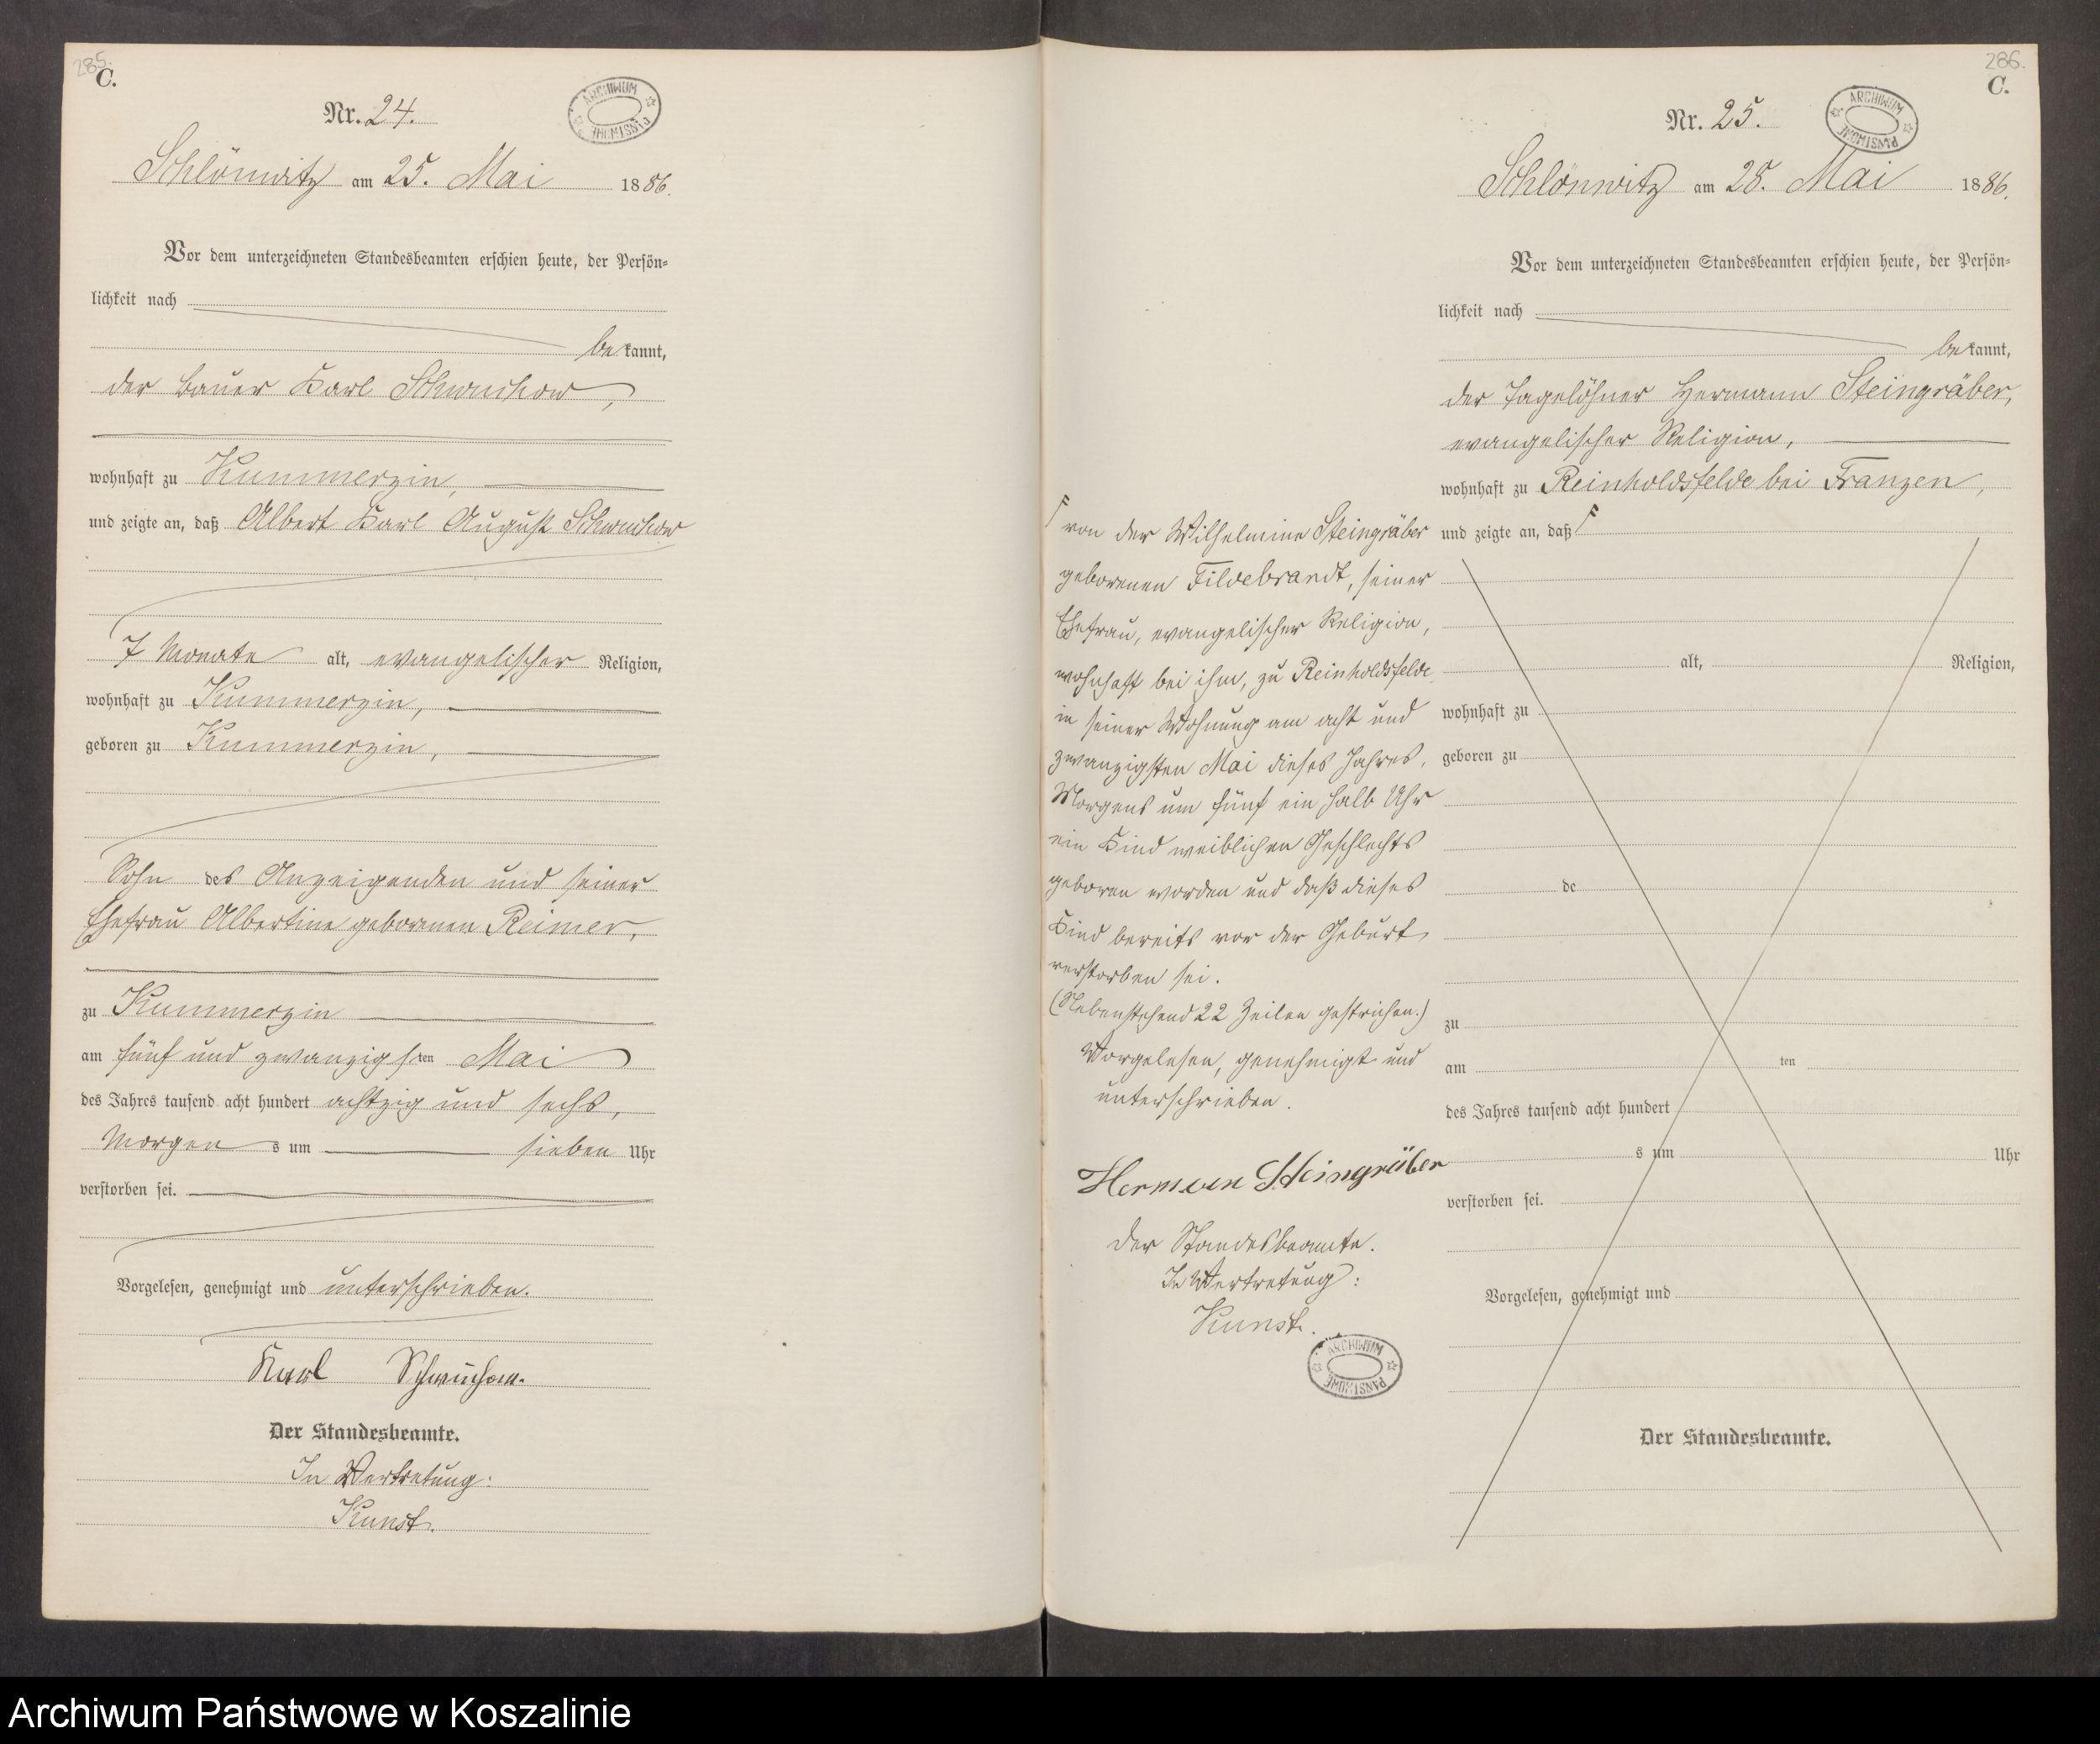 285.
C.
Nr. 24.
ARCHIWUM PAŃSTWOWE
Schlönwitz am 25. Mai 1886.
Vor dem unterzeichneten Standesbeamten erschien heute, der Persön-
lichkeit nach
bekannt,
der Bauer Karl Schwuchow,
wohnhaft zu Kummerzin,
und zeigte an, daß Albert Karl August Schwuchow
7 Monate alt, evangelischer Religion,
wohnhaft zu Kummerzin,
geboren zu Kummerzin,
Sohn des Anzeigenden und seiner
Ehefrau Albertine geborenen Reimer,
zu Kummerzin
am fünf und zwanzigsten Mai
des Jahres tausend acht hundert achtzig und sechs,
Morgens um sieben Uhr
verstorben sei.
Vorgelesen, genehmigt und unterschrieben.
Karl Schwuchow.
Der Standesbeamte.
In Vertretung:
Kunst.
286.
C.
Nr. 25.
ARCHIWUM PAŃSTWOWE
Schlönwitz am 28. Mai 1886.
Vor dem unterzeichneten Standesbeamten erschien heute, der Persön-
lichkeit nach
bekannt,
der Tagelöhner Hermann Steingräber,
evangelischer Religion,
wohnhaft zu Reinholdsfelde bei Franzen,
und zeigte an, daß
von der Wilhelmine Steingräber
geborenen Fildebrandt, seiner
Ehefrau, evangelischer Religion,
wohnhaft bei ihm, zu Reinholdsfelde
in seiner Wohnung am acht und
zwanzigsten Mai dieses Jahres,
Morgens um fünf ein halb Uhr
ein Kind weiblichen Geschlechts
geboren worden und daß dieses
Kind bereits vor der Geburt
verstorben sei.
(Nebenstehend 22 Zeilen gestrichen.)
Vorgelesen, genehmigt und
unterschrieben.
Hermann Steingräber
Der Standesbeamte.
In Vertretung:
Kunst.
ARCHIWUM PAŃSTWOWE
alt, Religion,
wohnhaft zu
geboren zu
de
zu
am ten
des Jahres tausend acht hundert
s um Uhr
verstorben sei.
Vorgelesen, genehmigt und
Der Standesbeamte.
Archiwum Państwowe w Koszalinie